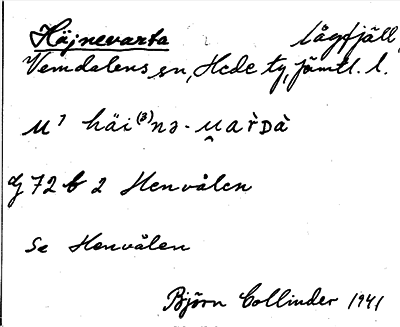 Häjnevarta lågfjäll
Vemdalens sn, Hede tg, Jämtl. l.
72 b 2 Henvålen
Se Henvålen
Björn Collinder 1941